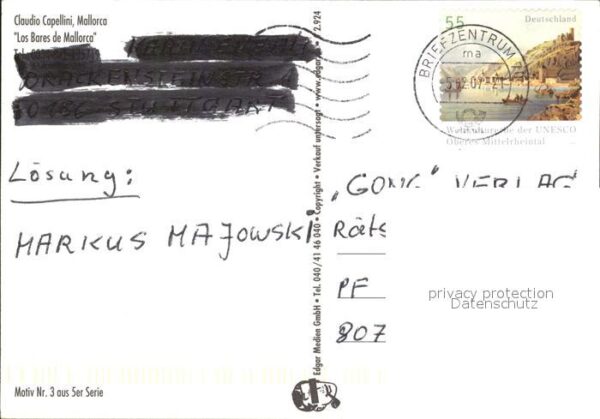 Claudio Capellini, Mallorca
"Los Bares de Mallorca"
Lösung:
MARKUS MAJOWSKI
Motiv Nr. 3 aus 5er Serie
Edgar Medien GmbH • Tel. 040/41 46 040 • Copyright • Verkauf untersagt • www.edgar • 2.924
55 Deutschland
BRIEFZENTRUM
Oberes Mittelrheintal
"GONG" VERLAG
Räts
PF
807
privacy protection
Datenschutz